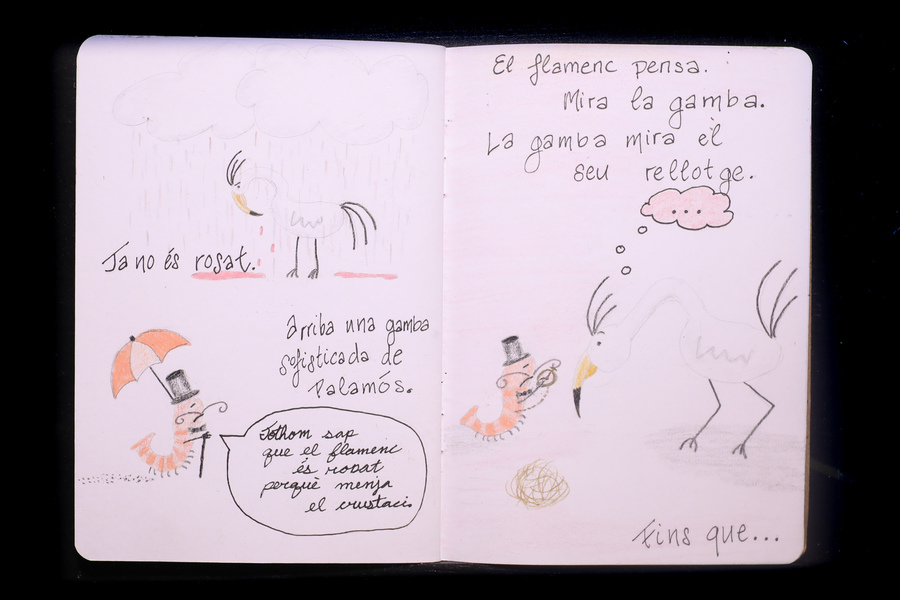 Ja no és rosat.
Arriba una gamba
sofisticada de
Palamós.
Tothom sap
que el flamenc
és rosat
perquè menja
el crustaci
El flamenc pensa.
Mira la gamba.
La gamba mira el
seu rellotge.
...
Fins que...